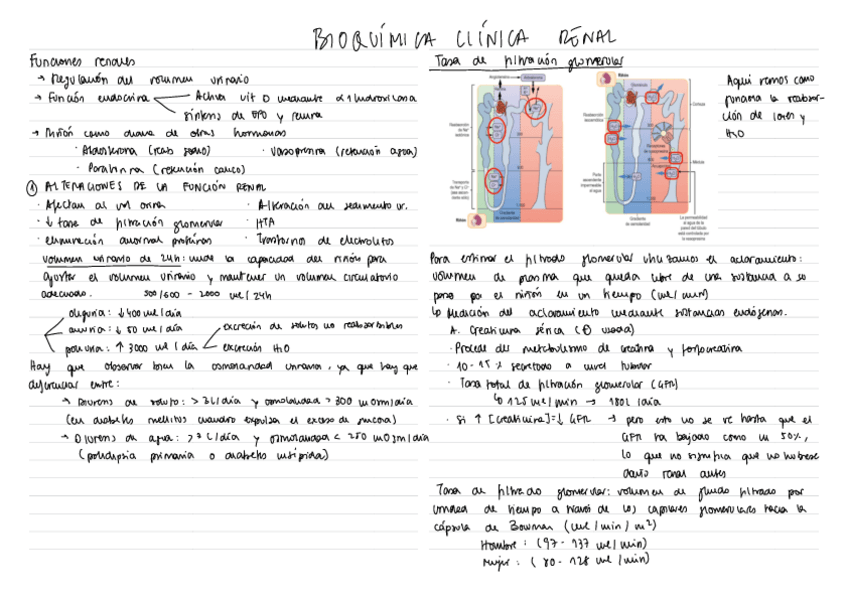 BIOQUÍMICA CLÍNICA RENAL
Funciones renales
→ Regulación del volumen urinario
→ Función endocrina
Activa vit D mediante α1hidroxilasa
síntesis de EPO y renina
→ Riñón como diana de otras hormonas
· Aldosterona (reab sodio)
· Vasopresina (retención agua)
· Parathrina (retención calcio)
① ALTERACIONES DE LA FUNCIÓN RENAL
· Afectan al vol orina
· Alteración del sedimento ur.
· ↓ tasa de filtración glomerular
· HTA
· eliminación anormal proteínas
· Trastornos de electrolitos
volumen urinario de 24h: mide la capacidad del riñón para
ajustar el volumen urinario y mantener un volumen circulatorio
adecuado. 500/600 - 2000 ml / 24h
oliguria: ↓ 400 ml / día
anuria: ↓ 50 ml / día
poliuria: ↑ 3000 ml / día
excreción de solutos no reabsorbibles
excreción H2O
Hay que observar bien la osmolaridad urinaria, ya que hay que
diferenciar entre:
→ Diuresis de soluto: > 3L/día y osmolaridad > 300 mOsm/día
(en diabetes mellitus cuando expulsa el exceso de sucrosa)
→ Diuresis de agua: > 3 L/día y osmolaridad < 250 mOsm/día
(polidipsia primaria o diabetes insípida)
Tasa de filtración glomerular
Aquí vemos como
funciona la reabsor-
ción de iones y
H2O
Médula
La permeabilidad
al agua de la
pared del túbulo
está controlada por
la vasopresina
Para estimar el filtrado glomerular utilizamos el aclaramiento:
volumen de plasma que queda libre de una sustancia a su
paso por el riñón en un tiempo (ml/min)
↳ Medición del aclaramiento mediante sustancias endógenas.
A. Creatinina sérica (⊕ usada)
· Procede del metabolismo de creatina y fosfocreatina
· 10-15% secretado a nivel tubular
· Tasa total de filtración glomerular (GFR)
↳ 125 ml/min → 180L /día
· Si ↑ [creatinina] = ↓ GFR → pero esto no se ve hasta que el
GFR ha bajado como un 50%,
lo que no significa que no hubiese
daño renal antes
Tasa de filtrado glomerular: volumen de fluido filtrado por
unidad de tiempo a través de los capilares glomerulares hacia la
cápsula de Bowman (ml/min/m²)
Hombre: (97-137 ml/min)
Mujer: (80-128 ml/min)